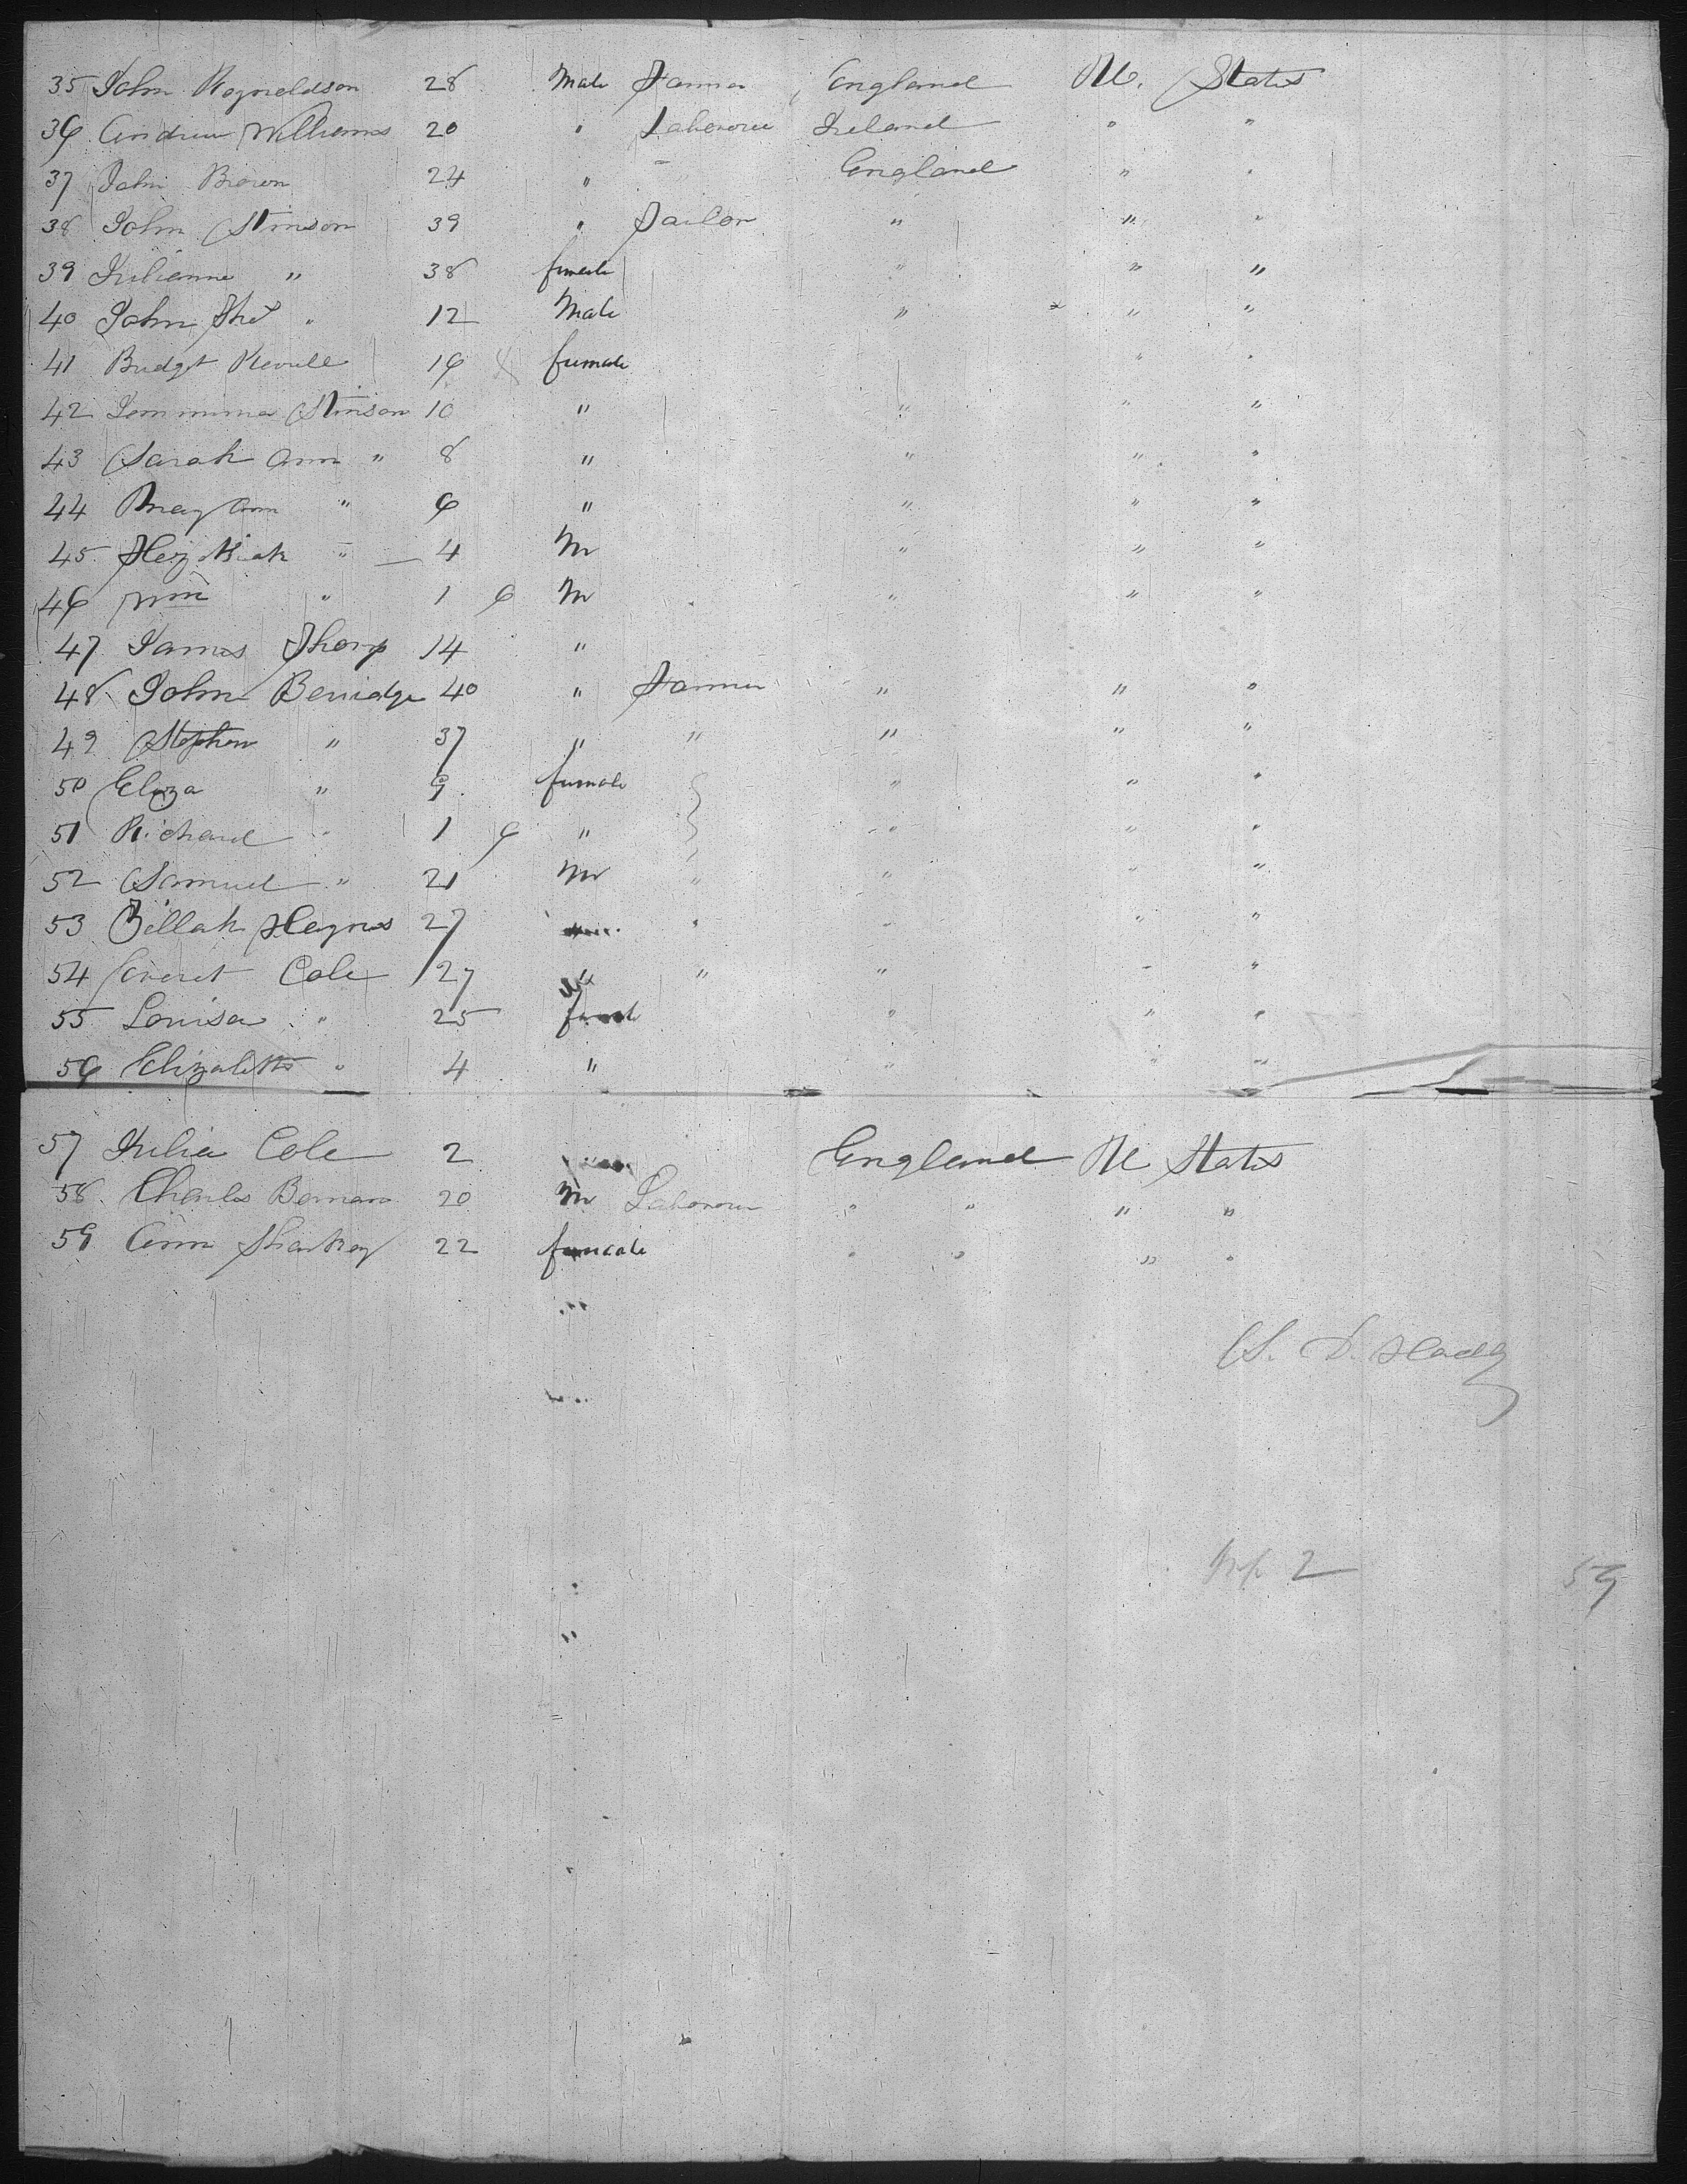 35 John Reynoldson 28 Male Farmer England U. States
36 Andrew Williams 20 " Labourer Ireland " "
37 John Brown 24 " " England " "
38 John Stinson 39 " Tailor " " "
39 Julianna " 38 female " " "
40 John " 12 Male " " "
41 Bridget 16 female " "
42 Jemmima Stinson 10 " " " "
43 Sarah Ann " 8 " " " "
44 Mary Ann " 6 " " " "
45 Hezekiah " 4 M " " "
46 Wm " 1 6 M " " "
47 James Thorp 14 "
48 John Berridge 40 " Farmer " " "
49 Stephen " 37 " " " " "
50 Eliza " 9 female " " "
51 Richard " 1 6 " " " "
52 Samuel " 21 M " " " "
53 Zillah Haynes 27 " " " "
54 Everet Cole 27 " " " " "
55 Louisa " 25 " " "
56 Elizabeth " 4 " " " "
57 Julia Cole 2 England U States
58 Charles 20 M Labourer " " " "
59 Ann Sharkey 22 female " " " "
S. D.
2 59